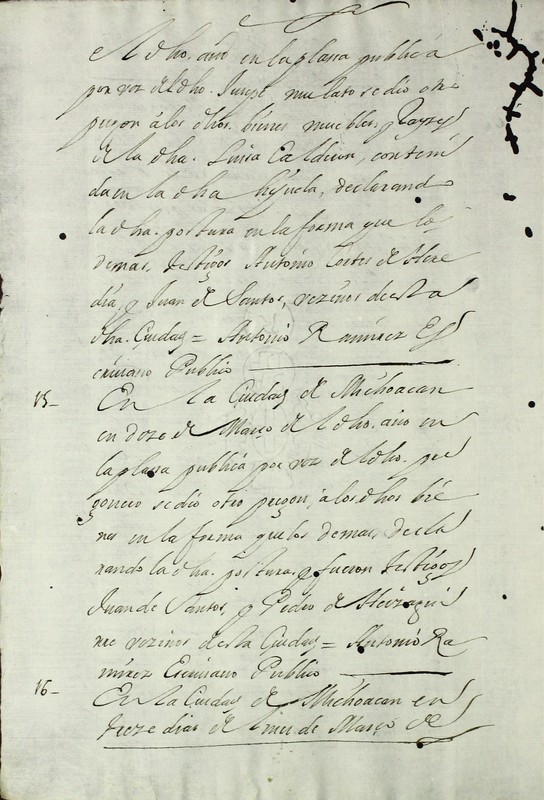 el dho. año en la plassa publica
por voz del dho. Juez mulato se dio otro
pregon a los dhos. bienes muebles, y Raizes
de la dha. Luisa Calderon, conteni
da en la dha hijuela, declarando
la dha. postura en la forma que los
demas, testigos Antonio Cortes de Here
dia, y Juan de Santos, vezinos desta
dha. Ciudad = Antonio Ramirez Es
criuano Publico
15_ En la Ciudad de Michoacan
en doze de Março del dho. año en
la plassa publica por voz del dho. pre
gonero se dio otro pregon, a los dhos bie
nes en la forma que los demas, decla
rando la dha. postura, y fueron testigos
Juan de Santos, y Pedro de
vezinos desta Ciudad = Antonio Ra
mirez Escriuano Publico
16_ En la Ciudad de Michoacan en
treze dias del mes de Março de